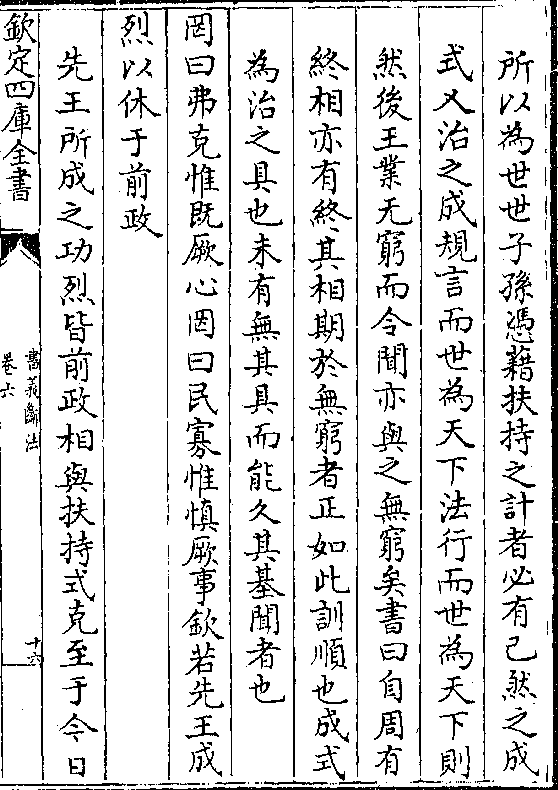 所以為世世子孫憑藉扶持之計者必有已然之成
式乂治之成規言而世為天下法行而世為天下則
然後王業无窮而令聞亦與之無窮矣書曰自周有
終相亦有終其相期於無窮者正如此訓順也成式
為治之具也未有無其具而能久其基聞者也
罔曰弗克惟既厥心罔曰民寡惟慎厥事欽若先王成
烈以休于前政
先王所成之功烈皆前政相與扶持式克至于今日
欽定四庫全書
書義斷法
卷六
十六